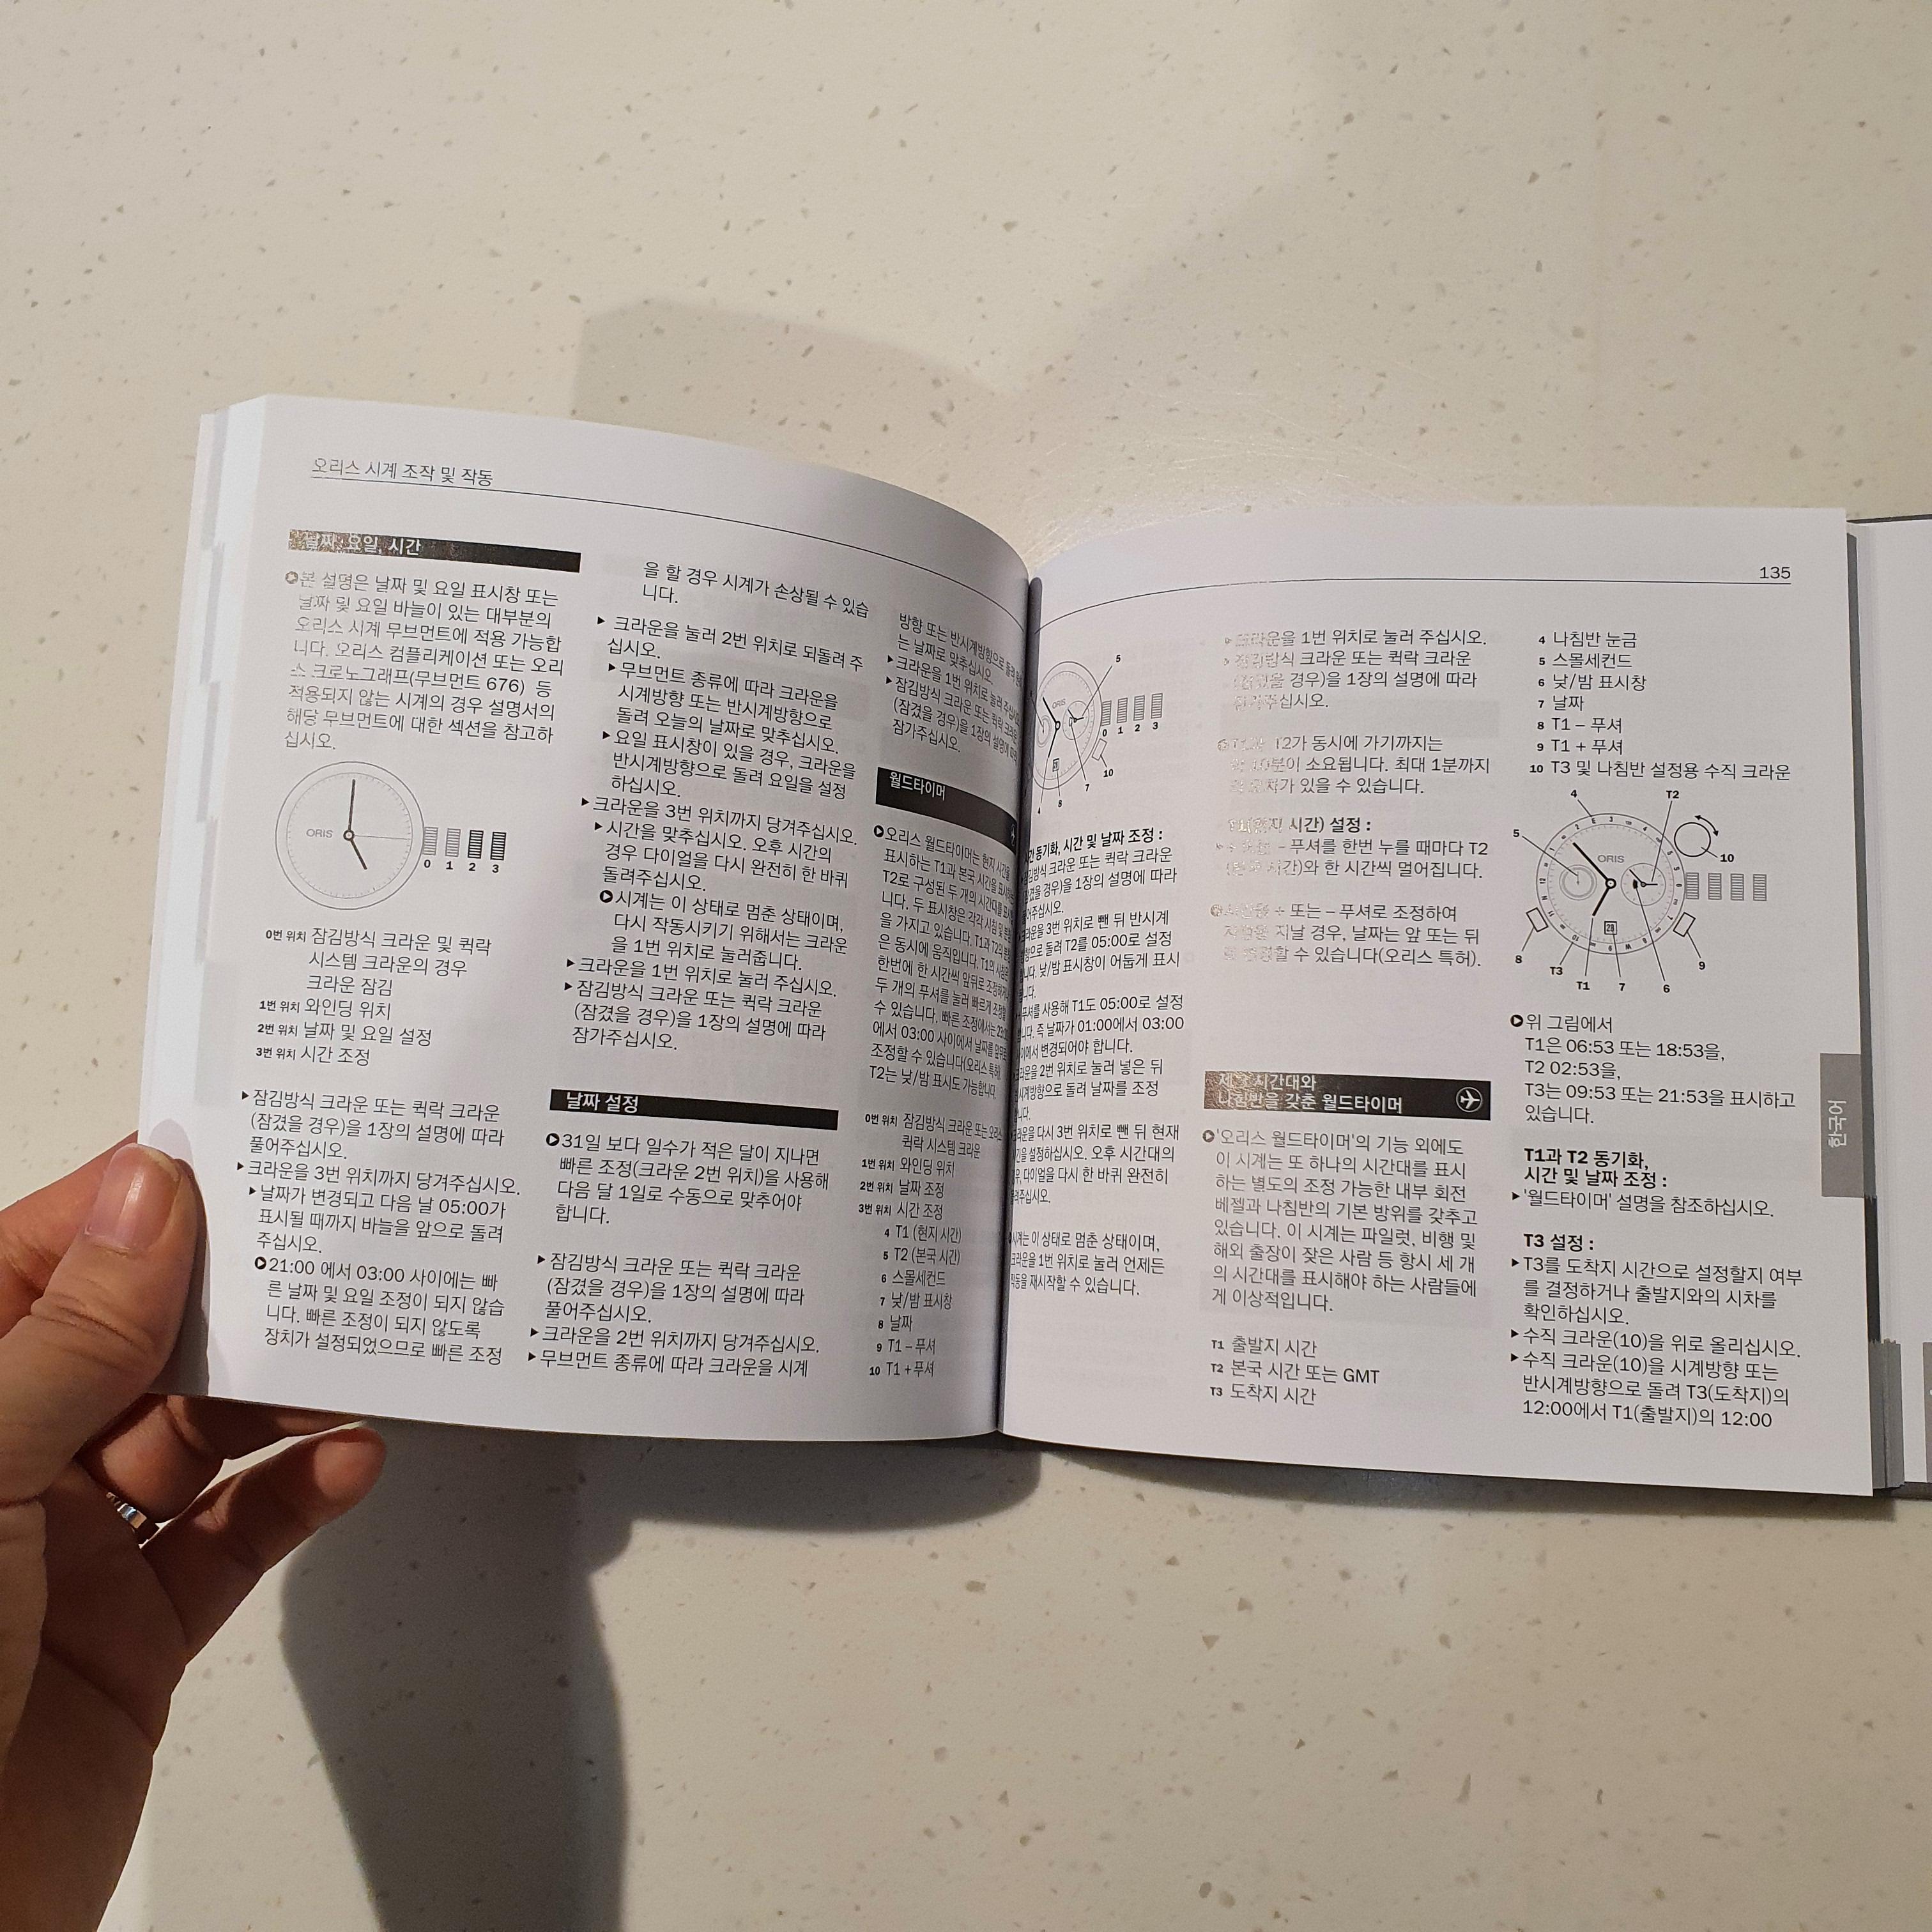 오리스 시계 조작 및 작동
날짜, 요일, 시간
본 설명은 날짜 및 요일 표시창 또는
날짜 및 요일 바늘이 있는 대부분의
오리스 시계 무브먼트에 적용 가능합
니다. 오리스 컴플리케이션 또는 오리
스 크로노그래프(무브먼트 676) 등
적용되지 않는 시계의 경우 설명서의
해당 무브먼트에 대한 섹션을 참고하
십시오.
ORIS
0 1 2 3
0번 위치 잠김방식 크라운 및 퀵락
시스템 크라운의 경우
크라운 잠김
1번 위치 와인딩 위치
2번 위치 날짜 및 요일 설정
3번 위치 시간 조정
잠김방식 크라운 또는 퀵락 크라운
(잠겼을 경우)을 1장의 설명에 따라
풀어주십시오.
크라운을 3번 위치까지 당겨주십시오.
날짜가 변경되고 다음 날 05:00가
표시될 때까지 바늘을 앞으로 돌려
주십시오.
21:00 에서 03:00 사이에는 빠
른 날짜 및 요일 조정이 되지 않습
니다. 빠른 조정이 되지 않도록
장치가 설정되었으므로 빠른 조정
을 할 경우 시계가 손상될 수 있습
니다.
크라운을 눌러 2번 위치로 되돌려 주
십시오.
무브먼트 종류에 따라 크라운을
시계방향 또는 반시계방향으로
돌려 오늘의 날짜로 맞추십시오.
요일 표시창이 있을 경우, 크라운을
반시계방향으로 돌려 요일을 설정
하십시오.
크라운을 3번 위치까지 당겨주십시오.
시간을 맞추십시오. 오후 시간의
경우 다이얼을 다시 완전히 한 바퀴
돌려주십시오.
시계는 이 상태로 멈춘 상태이며,
다시 작동시키기 위해서는 크라운
을 1번 위치로 눌러줍니다.
크라운을 1번 위치로 눌러 주십시오.
잠김방식 크라운 또는 퀵락 크라운
(잠겼을 경우)을 1장의 설명에 따라
잠가주십시오.
날짜 설정
31일 보다 일수가 적은 달이 지나면
빠른 조정(크라운 2번 위치)을 사용해
다음 달 1일로 수동으로 맞추어야
합니다.
잠김방식 크라운 또는 퀵락 크라운
(잠겼을 경우)을 1장의 설명에 따라
풀어주십시오.
크라운을 2번 위치까지 당겨주십시오.
무브먼트 종류에 따라 크라운을 시계
방향 또는 반시계방향으로 돌려
는 날짜로 맞추십시오.
크라운을 1번 위치로 눌러
잠김방식 크라운 또는 퀵락 크라운
(잠겼을 경우)을 1장의 설명에 따라
잠가주십시오.
월드타이머
오리스 월드타이머는 현지 시간을
표시하는 T1과 본국 시간을
T2로 구성된 두 개의 시간대를
니다. 두 표시창은 각각 시침 및
을 가지고 있습니다. T1과 T2의
은 동시에 움직입니다. T1의 시침은
한번에 한 시간씩 앞뒤로
두 개의 푸셔를 눌러 빠르게 조정할
수 있습니다. 빠른 조정에서는
에서 03:00 사이에서 날짜를
조정할 수 있습니다(오리스 특허).
T2는 낮/밤 표시도 가능합니다.
0번 위치 잠김방식 크라운 또는 오리스
퀵락 시스템 크라운
1번 위치 와인딩 위치
2번 위치 날짜 조정
3번 위치 시간 조정
4 T1 (현지 시간)
5 T2 (본국 시간)
6 스몰세컨드
7 낮/밤 표시창
8 날짜
9 T1 – 푸셔
10 T1 + 푸셔
135
ORIS
5
0 1 2 3
10
7
8
4
동기화, 시간 및 날짜 조정 :
크라운 또는 퀵락 크라운
경우)을 1장의 설명에 따라
3번 위치로 뺀 뒤 반시계
돌려 T2를 05:00로 설정
낮/밤 표시창이 어둡게 표시
푸셔를 사용해 T1도 05:00로 설정
즉 날짜가 01:00에서 03:00
변경되어야 합니다.
2번 위치로 눌러 넣은 뒤
돌려 날짜를 조정
다시 3번 위치로 뺀 뒤 현재
설정하십시오. 오후 시간대의
다이얼을 다시 한 바퀴 완전히
이 상태로 멈춘 상태이며,
1번 위치로 눌러 언제든
재시작할 수 있습니다.
크라운을 1번 위치로 눌러 주십시오.
잠김방식 크라운 또는 퀵락 크라운
(잠겼을 경우)을 1장의 설명에 따라
잠가주십시오.
T2가 동시에 가기까지는
10분이 소요됩니다. 최대 1분까지
오차가 있을 수 있습니다.
T1(현지 시간) 설정 :
– 푸셔를 한번 누를 때마다 T2
(본국 시간)와 한 시간씩 멀어집니다.
+ 또는 – 푸셔로 조정하여
지날 경우, 날짜는 앞 또는 뒤
수 있습니다(오리스 특허).
제3 시간대와
나침반을 갖춘 월드타이머
'오리스 월드타이머'의 기능 외에도
이 시계는 또 하나의 시간대를 표시
하는 별도의 조정 가능한 내부 회전
베젤과 나침반의 기본 방위를 갖추고
있습니다. 이 시계는 파일럿, 비행 및
해외 출장이 잦은 사람 등 항시 세 개
의 시간대를 표시해야 하는 사람들에
게 이상적입니다.
T1 출발지 시간
T2 본국 시간 또는 GMT
T3 도착지 시간
4 나침반 눈금
5 스몰세컨드
6 낮/밤 표시창
7 날짜
8 T1 – 푸셔
9 T1 + 푸셔
10 T3 및 나침반 설정용 수직 크라운
4
T2
5
10
ORIS
28
8
T3
T1
7
6
9
위 그림에서
T1은 06:53 또는 18:53을,
T2 02:53을,
T3는 09:53 또는 21:53을 표시하고
있습니다.
T1과 T2 동기화,
시간 및 날짜 조정 :
'월드타이머' 설명을 참조하십시오.
T3 설정 :
T3를 도착지 시간으로 설정할지 여부
를 결정하거나 출발지와의 시차를
확인하십시오.
수직 크라운(10)을 위로 올리십시오.
수직 크라운(10)을 시계방향 또는
반시계방향으로 돌려 T3(도착지)의
12:00에서 T1(출발지)의 12:00
한국어